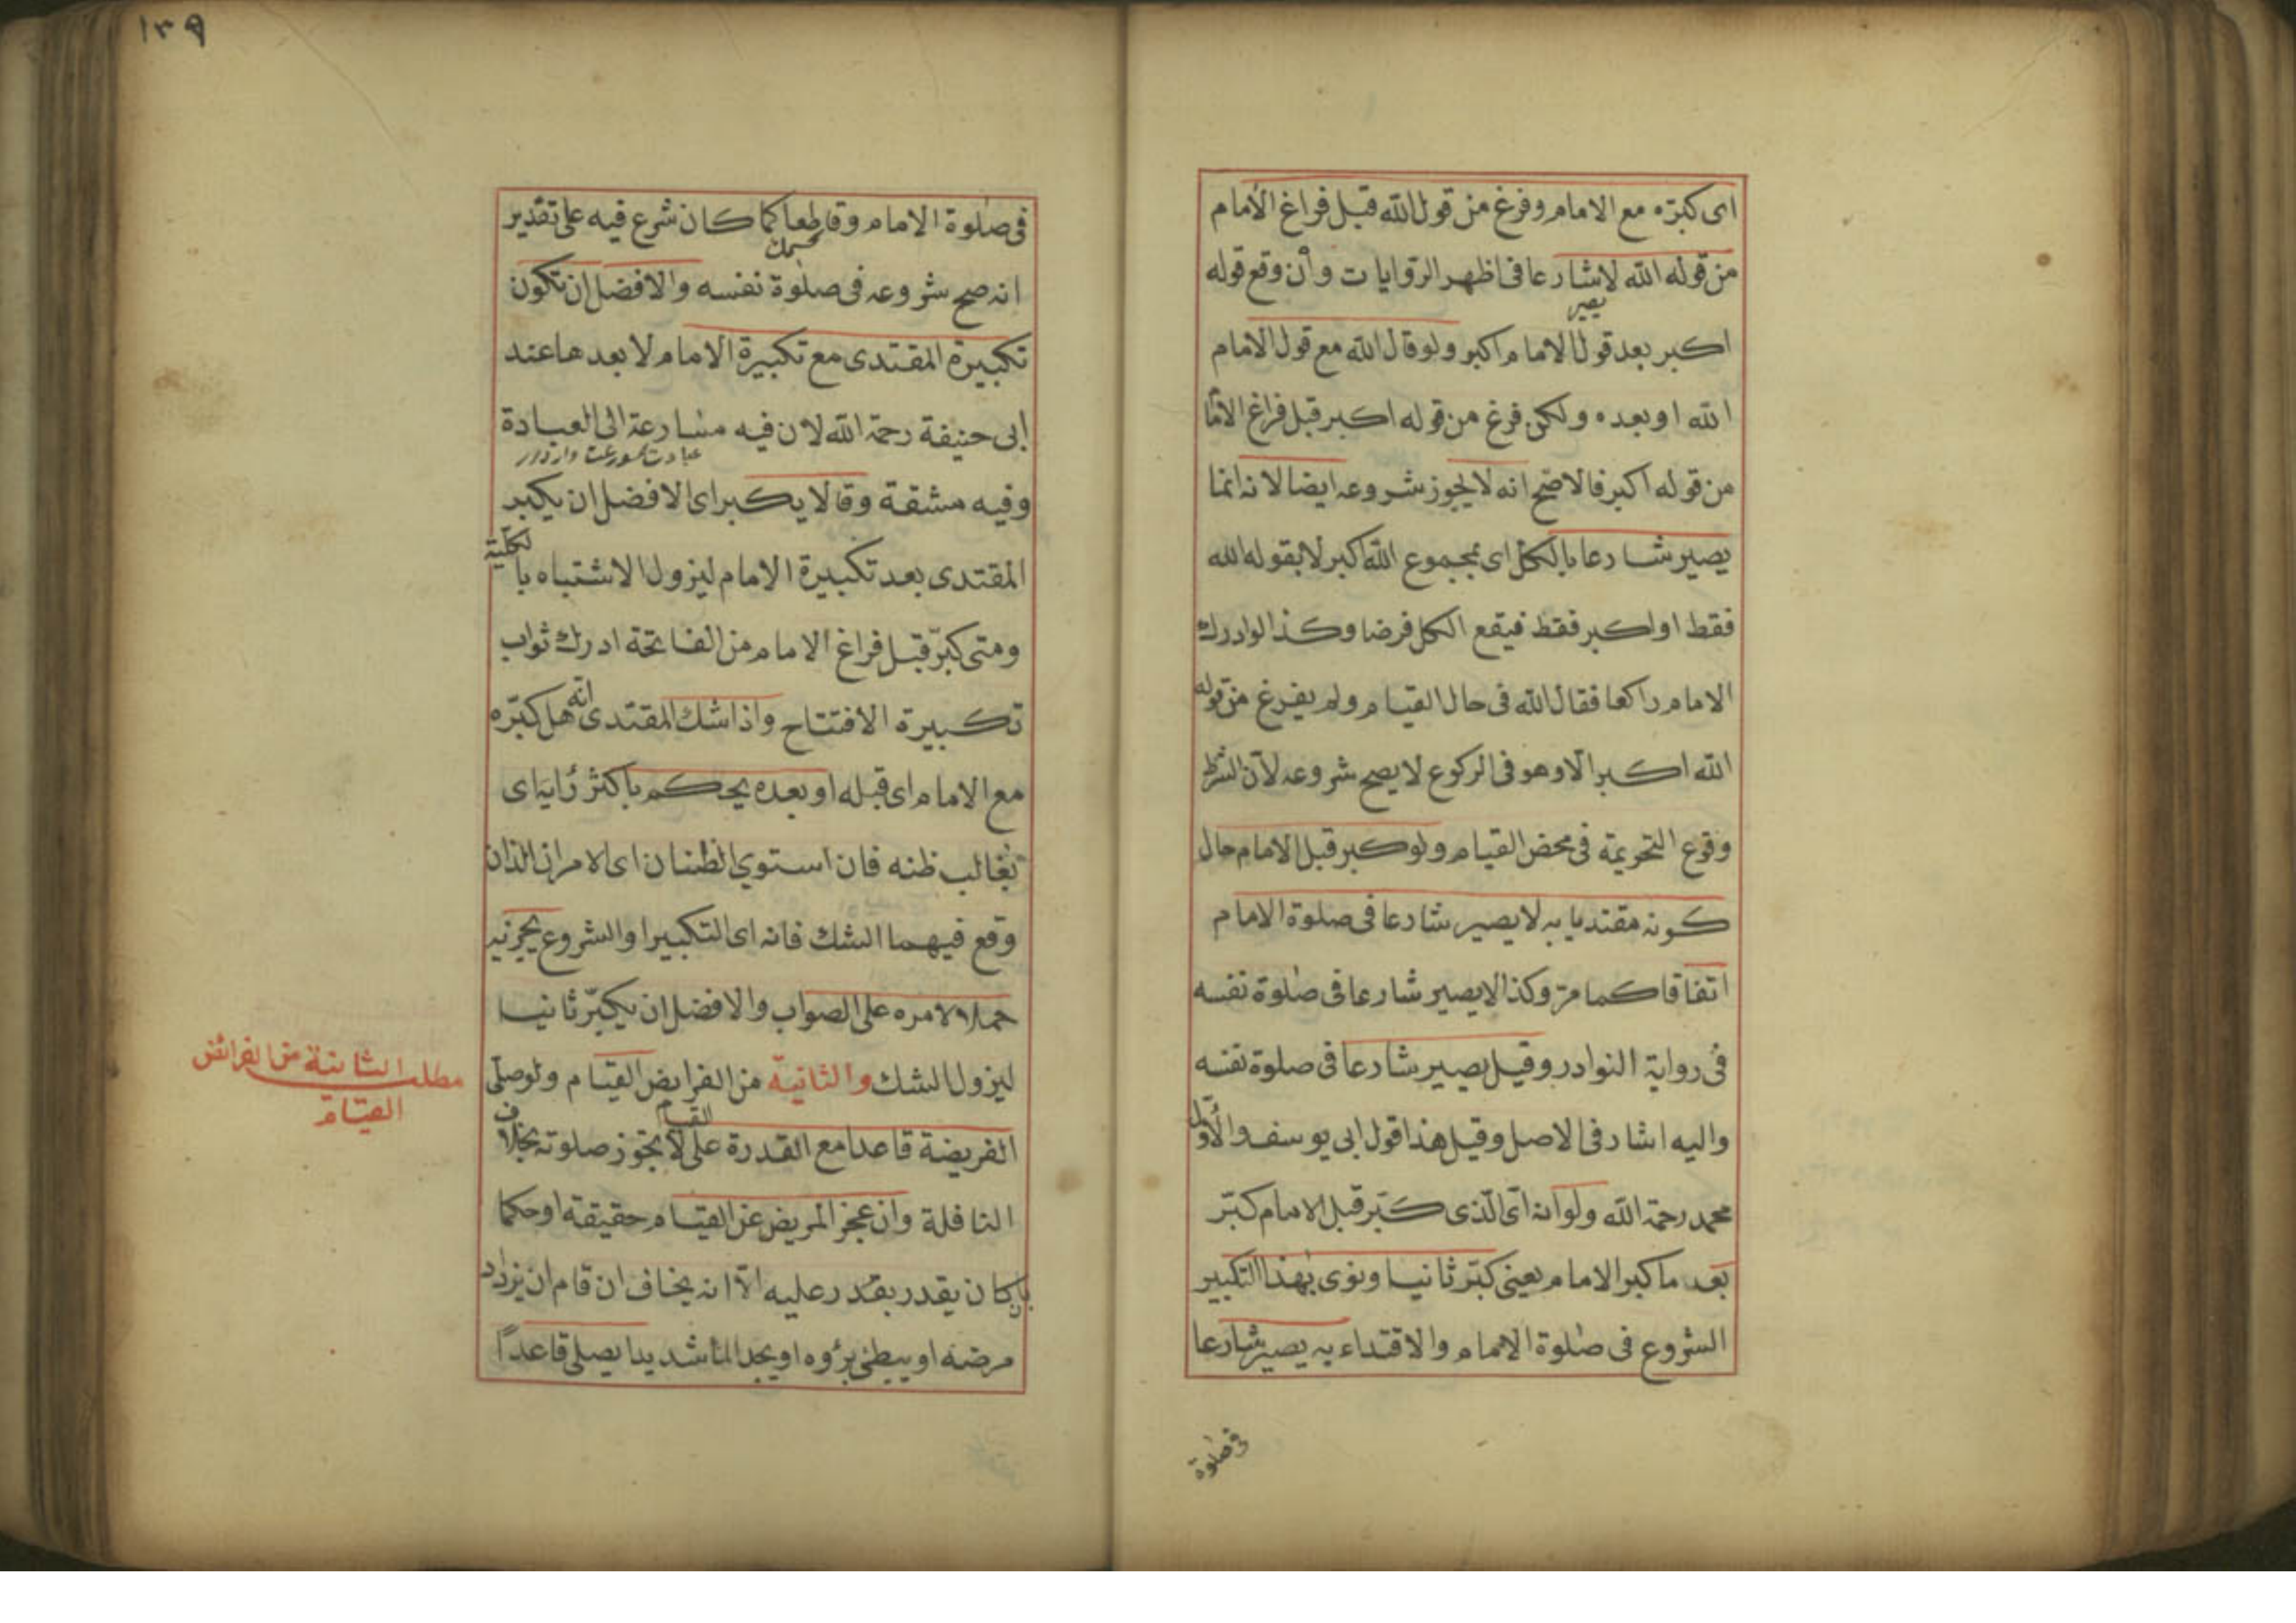 اى كبّره مع الامام وفرغ من قول الله قبل فراغ الامام
من قوله الله لا شارعا فى اظهر الروايات وان وقع قوله
يصير
اكبر بعد قول الامام اكبر ولو قال الله مع قول الامام
الله او بعده ولكن فرغ من قوله اكبر قبل فراغ الاما
من قوله اكبر فالاصح انه لا يجوز شروعه ايضا لانه انما
يصير شارعا بالكل اى بمجموع الله اكبر لا بقوله الله
فقط او اكبر فقط فيقع الكل فرضا وكذا لو ادرك
الامام راكعا فقال الله فى حال القيام ولم يفرغ من قوله
الله اكبر الا وهو فى الركوع لا يصح شروعه لان الشرط
وقوع التحريمة فى محض القيام ولو كبر قبل الامام حال
كونه مقتديا به لا يصير شارعا فى صلوة الامام
اتفاقا كما مرّ وكذا لا يصير شارعا فى صلوة نفسه
فى رواية النوادر وقيل يصير شارعا فى صلوة نفسه
واليه اشار فى الاصل وقيل هذا قول ابى يوسف والأول
محمد رحمة الله ولو انه اى الّذى كبّر قبل الامام كبّر
بعد ما كبر الامام يعنى كبّر ثانيا ونوى بهذا التكبير
الشروع فى صلوة الامام والاقتداء به يصير شارعا
فى صلوة
١٣٩
فى صلوة الامام وقاطعا كما كان شرع فيه على تقدير
انه صح شروعه فى صلوة نفسه والافضل ان تكون
تكبيرة المقتدى مع تكبيرة الامام لا بعدها عند
ابى حنيفة رحمة الله لان فيه مسارعة الى العبادة
وفيه مشقة وقالا يكبر اى الافضل ان يكبر
المقتدى بعد تكبيرة الامام ليزول الاشتباه بالكلية
ومتى كبّر قبل فراغ الامام من الفاتحة ادرك ثواب
تكبيرة الافتتاح واذا شك المقتدى انه هل كبّره
مع الامام اى قبله او بعده يحكم باكثر رأيه اى
بغالب ظنه فان استوى الظنان اى الامران اللذان
وقع فيهما الشك فانه اى التكبير او الشروع يجزئه
حملا لامره على الصواب والافضل ان يكبّر ثانيا
ليزول الشك والثانية من الفرايض القيام ولو صلى
مطلب الثانية من الفرائض
القيام
الفريضة قاعدا مع القدرة على القيام لا تجوز صلوته بخلاف
النافلة وان عجز المريض عن القيام حقيقة او حكما
بان كان يقدر بقدر عليه الا انه يخاف ان قام ان يزداد
مرضه او يبطئ برؤه او يجد الما شديدا يصلى قاعدًا